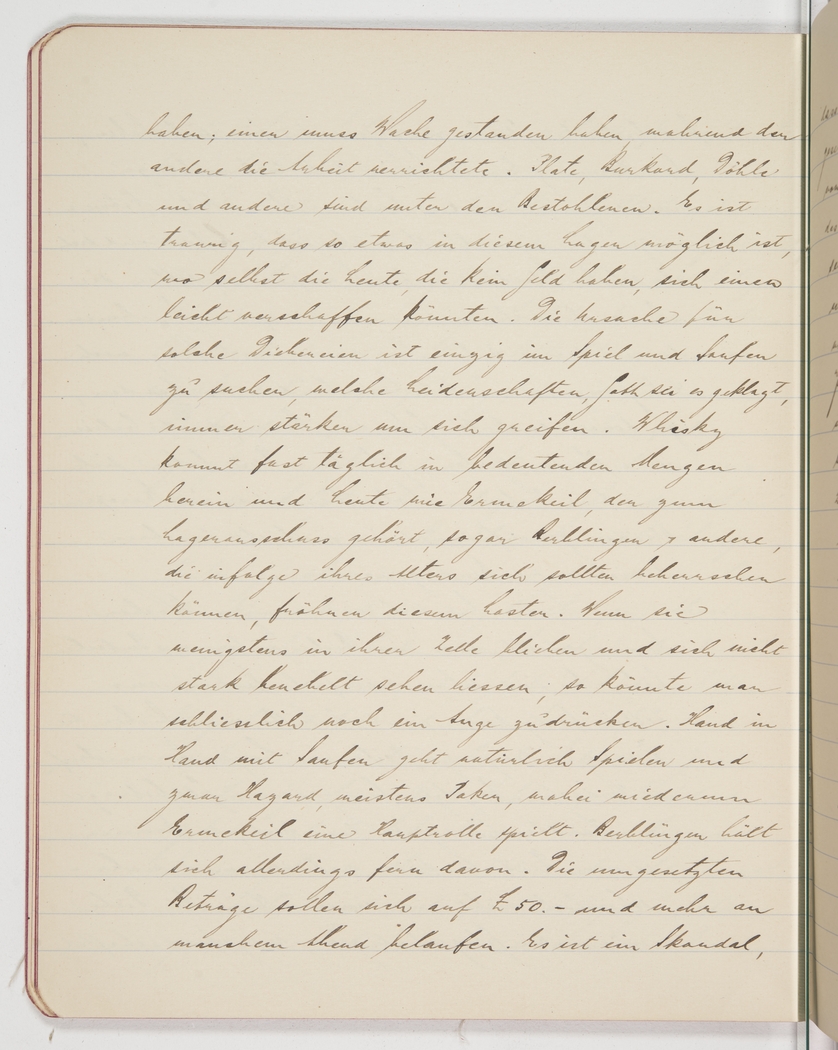 haben; einer muss Wache gestanden haben, während der
andere die Arbeit verrichtete. Plate, Burkard, Döhle
und andere sind unter den Bestohlenen. Es ist
traurig, dass so etwas in diesem Lager möglich ist,
wo selbst die Leute, die kein Geld haben, sich einen
leicht verschaffen könnten. Die Ursache für
solche Diebereien ist einzig im Spiel und Saufen
zu suchen, welche Leidenschaften, Gott sei es geklagt,
immer stärker um sich greifen. Whisky
kommt fast täglich in bedeutenden Mengen
herein und Leute wie Ermekeil, der zum
Lagerausschuss gehört, sogar Berblinger & andere,
die infolge ihres Alters sich sollten beherrschen
können, fröhnen diesem Laster. Wenn sie
wenigstens in ihrer Zelle blieben und sich nicht
stark benebelt sehen liessen, so könnte man
schliesslich noch ein Auge zudrücken. Hand in
Hand mit Saufen geht natürlich Spielen und
zwar Hazard, meistens Poker, wobei wiederum
Ermekeil eine Hauptrolle spielt. Berblinger hält
sich allerdings fern davon. Die umgesetzten
Beträge sollen sich auf £ 50.- und mehr an
manchem Abend belaufen. Es ist ein Skandal,